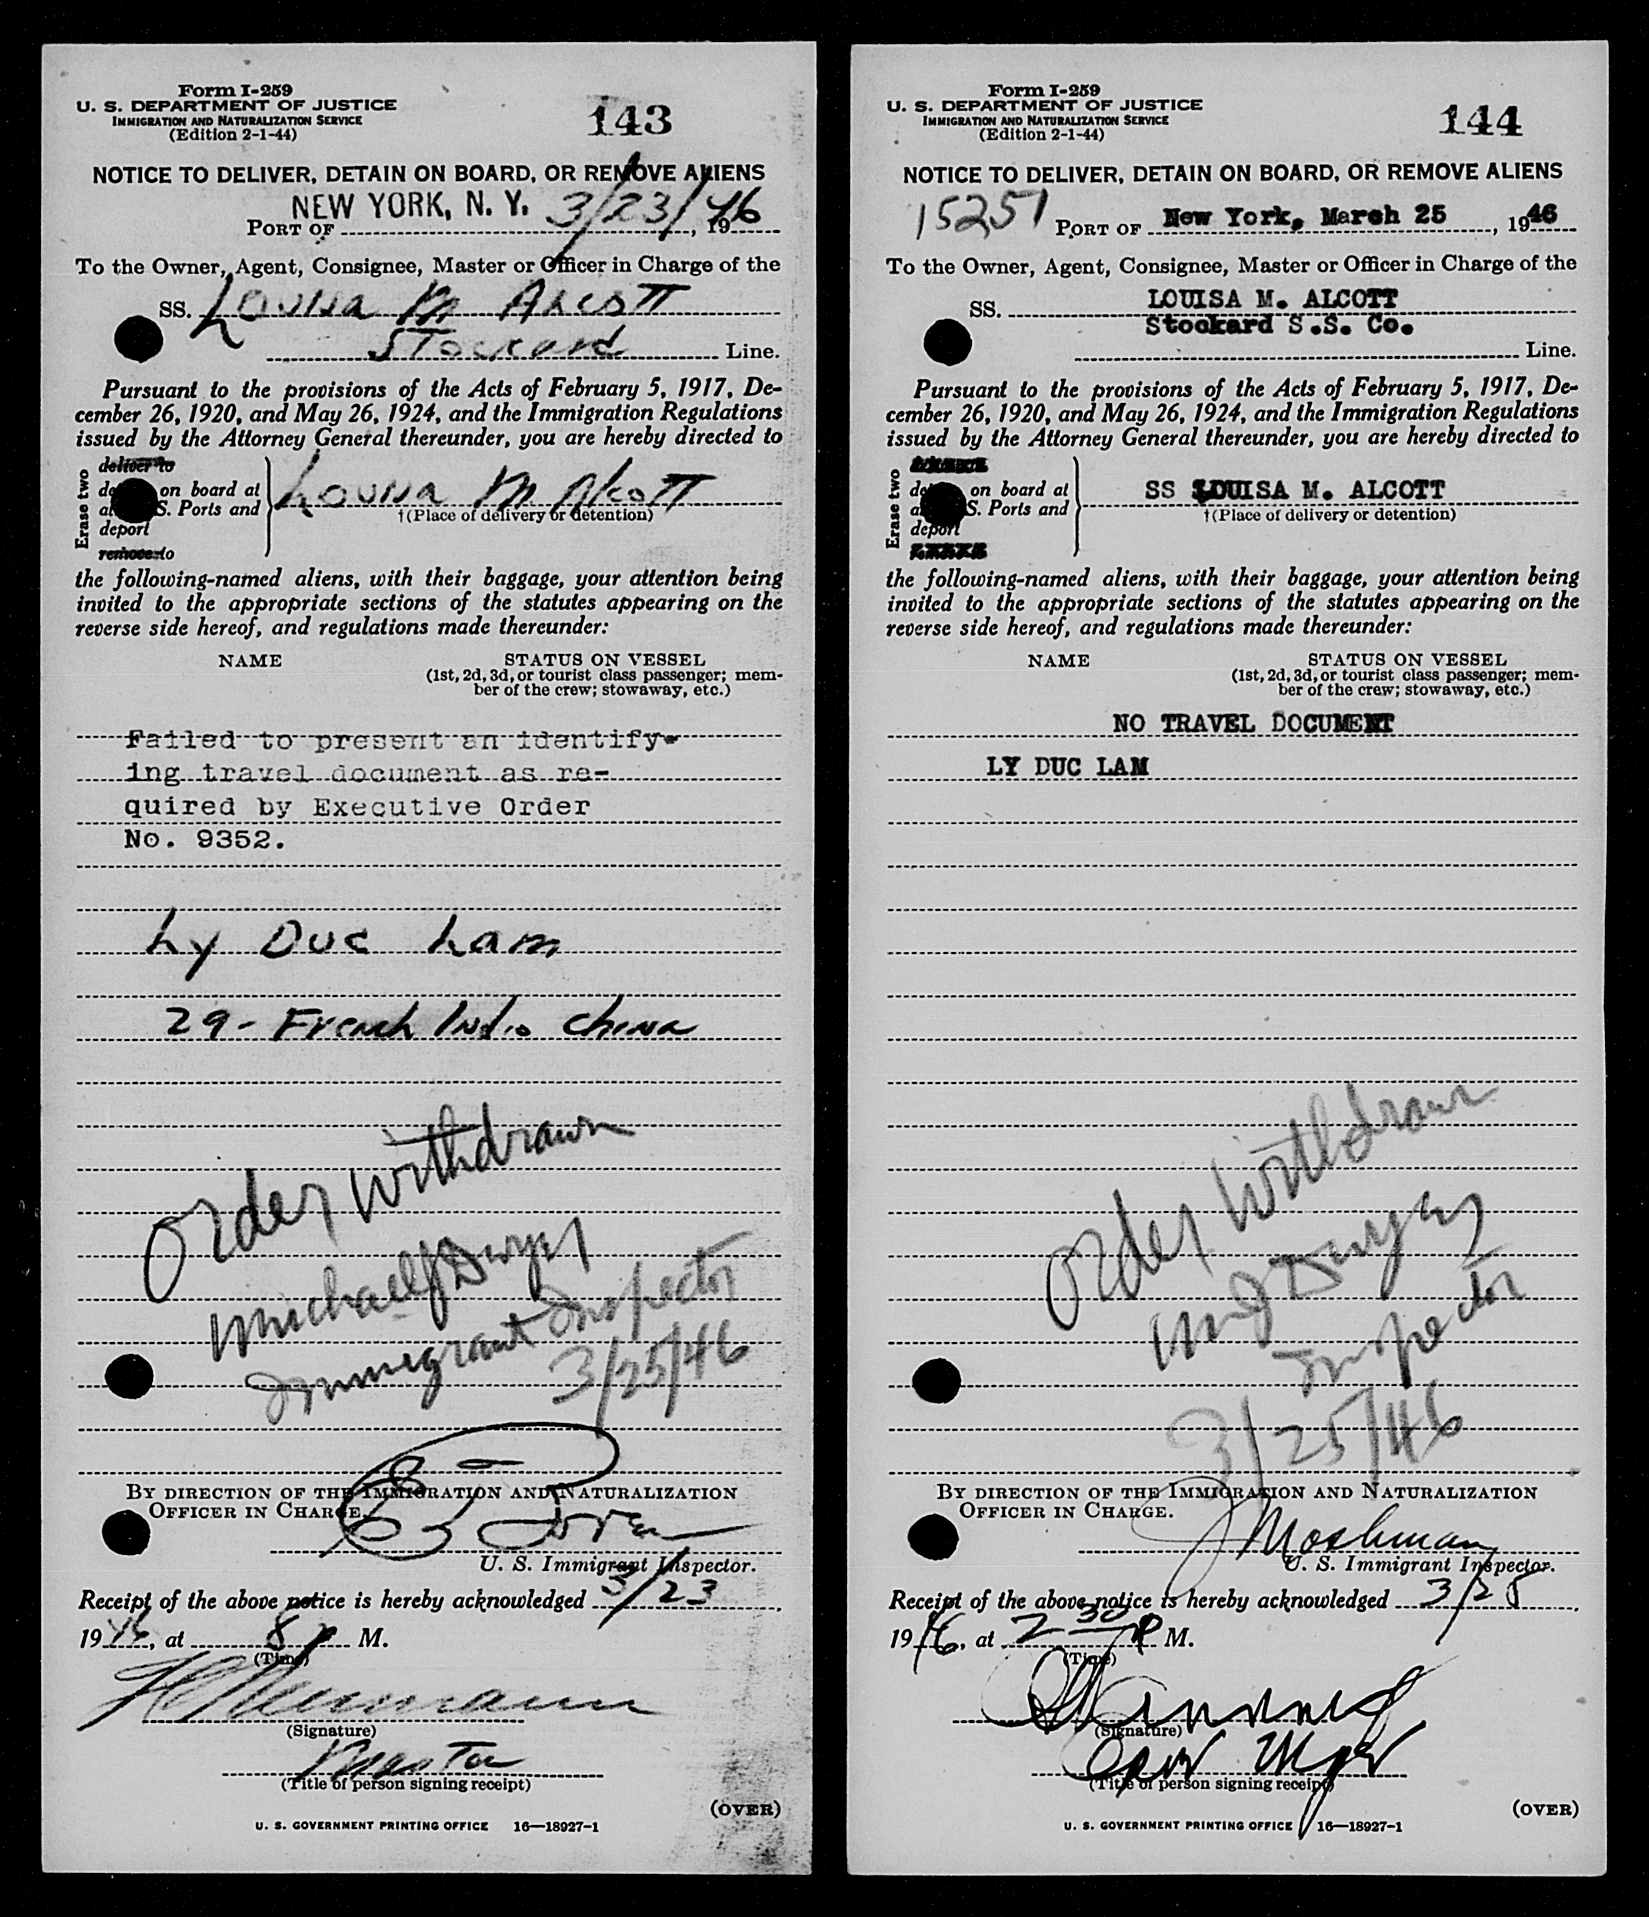 Form I-259
U. S. DEPARTMENT OF JUSTICE
IMMIGRATION AND NATURALIZATION SERVICE
(Edition 2-1-44)
143
NOTICE TO DELIVER, DETAIN ON BOARD, OR REMOVE ALIENS
PORT OF NEW YORK, N. Y. 3/23/46, 19
To the Owner, Agent, Consignee, Master or Officer in Charge of the
SS. Louisa M Alcott
Stockard Line.
Pursuant to the provisions of the Acts of February 5, 1917, De-
cember 26, 1920, and May 26, 1924, and the Immigration Regulations
issued by the Attorney General thereunder, you are hereby directed to
Erase two
deliver to
on board at
S. Ports and
deport
remove to
Louisa M Alcott
†(Place of delivery or detention)
the following-named aliens, with their baggage, your attention being
invited to the appropriate sections of the statutes appearing on the
reverse side hereof, and regulations made thereunder:
NAME STATUS ON VESSEL
(1st, 2d, 3d, or tourist class passenger; mem-
ber of the crew; stowaway, etc.)
Failed to present an identify-
ing travel document as re-
quired by Executive Order
No. 9352.
Ly Duc Lam
29 - French Indo China
Order withdrawn
Michael J Dwyer
Immigrant Inspector
3/25/46
BY DIRECTION OF THE IMMIGRATION AND NATURALIZATION
OFFICER IN CHARGE.
U. S. Immigrant Inspector.
Receipt of the above notice is hereby acknowledged 3/23,
1946, at 8 P M.
(Time)
H Neumann
(Signature)
Master
(Title of person signing receipt)
(OVER)
U. S. GOVERNMENT PRINTING OFFICE 16—18927-1
Form I-259
U. S. DEPARTMENT OF JUSTICE
IMMIGRATION AND NATURALIZATION SERVICE
(Edition 2-1-44)
144
NOTICE TO DELIVER, DETAIN ON BOARD, OR REMOVE ALIENS
15251 PORT OF New York, March 25, 1946
To the Owner, Agent, Consignee, Master or Officer in Charge of the
SS. LOUISA M. ALCOTT
Stockard S.S. Co.
Line.
Pursuant to the provisions of the Acts of February 5, 1917, De-
cember 26, 1920, and May 26, 1924, and the Immigration Regulations
issued by the Attorney General thereunder, you are hereby directed to
Erase two
on board at
S. Ports and
deport
SS LOUISA M. ALCOTT
†(Place of delivery or detention)
the following-named aliens, with their baggage, your attention being
invited to the appropriate sections of the statutes appearing on the
reverse side hereof, and regulations made thereunder:
NAME STATUS ON VESSEL
(1st, 2d, 3d, or tourist class passenger; mem-
ber of the crew; stowaway, etc.)
NO TRAVEL DOCUMENT
LY DUC LAM
Order withdrawn
M J Dwyer
Inspector
3/25/46
BY DIRECTION OF THE IMMIGRATION AND NATURALIZATION
OFFICER IN CHARGE.
J Moshman
U. S. Immigrant Inspector.
Receipt of the above notice is hereby acknowledged 3/25,
1946, at 2 30 P M.
(Time)
(Signature)
Oper Mgr
(Title of person signing receipt)
(OVER)
U. S. GOVERNMENT PRINTING OFFICE 16—18927-1